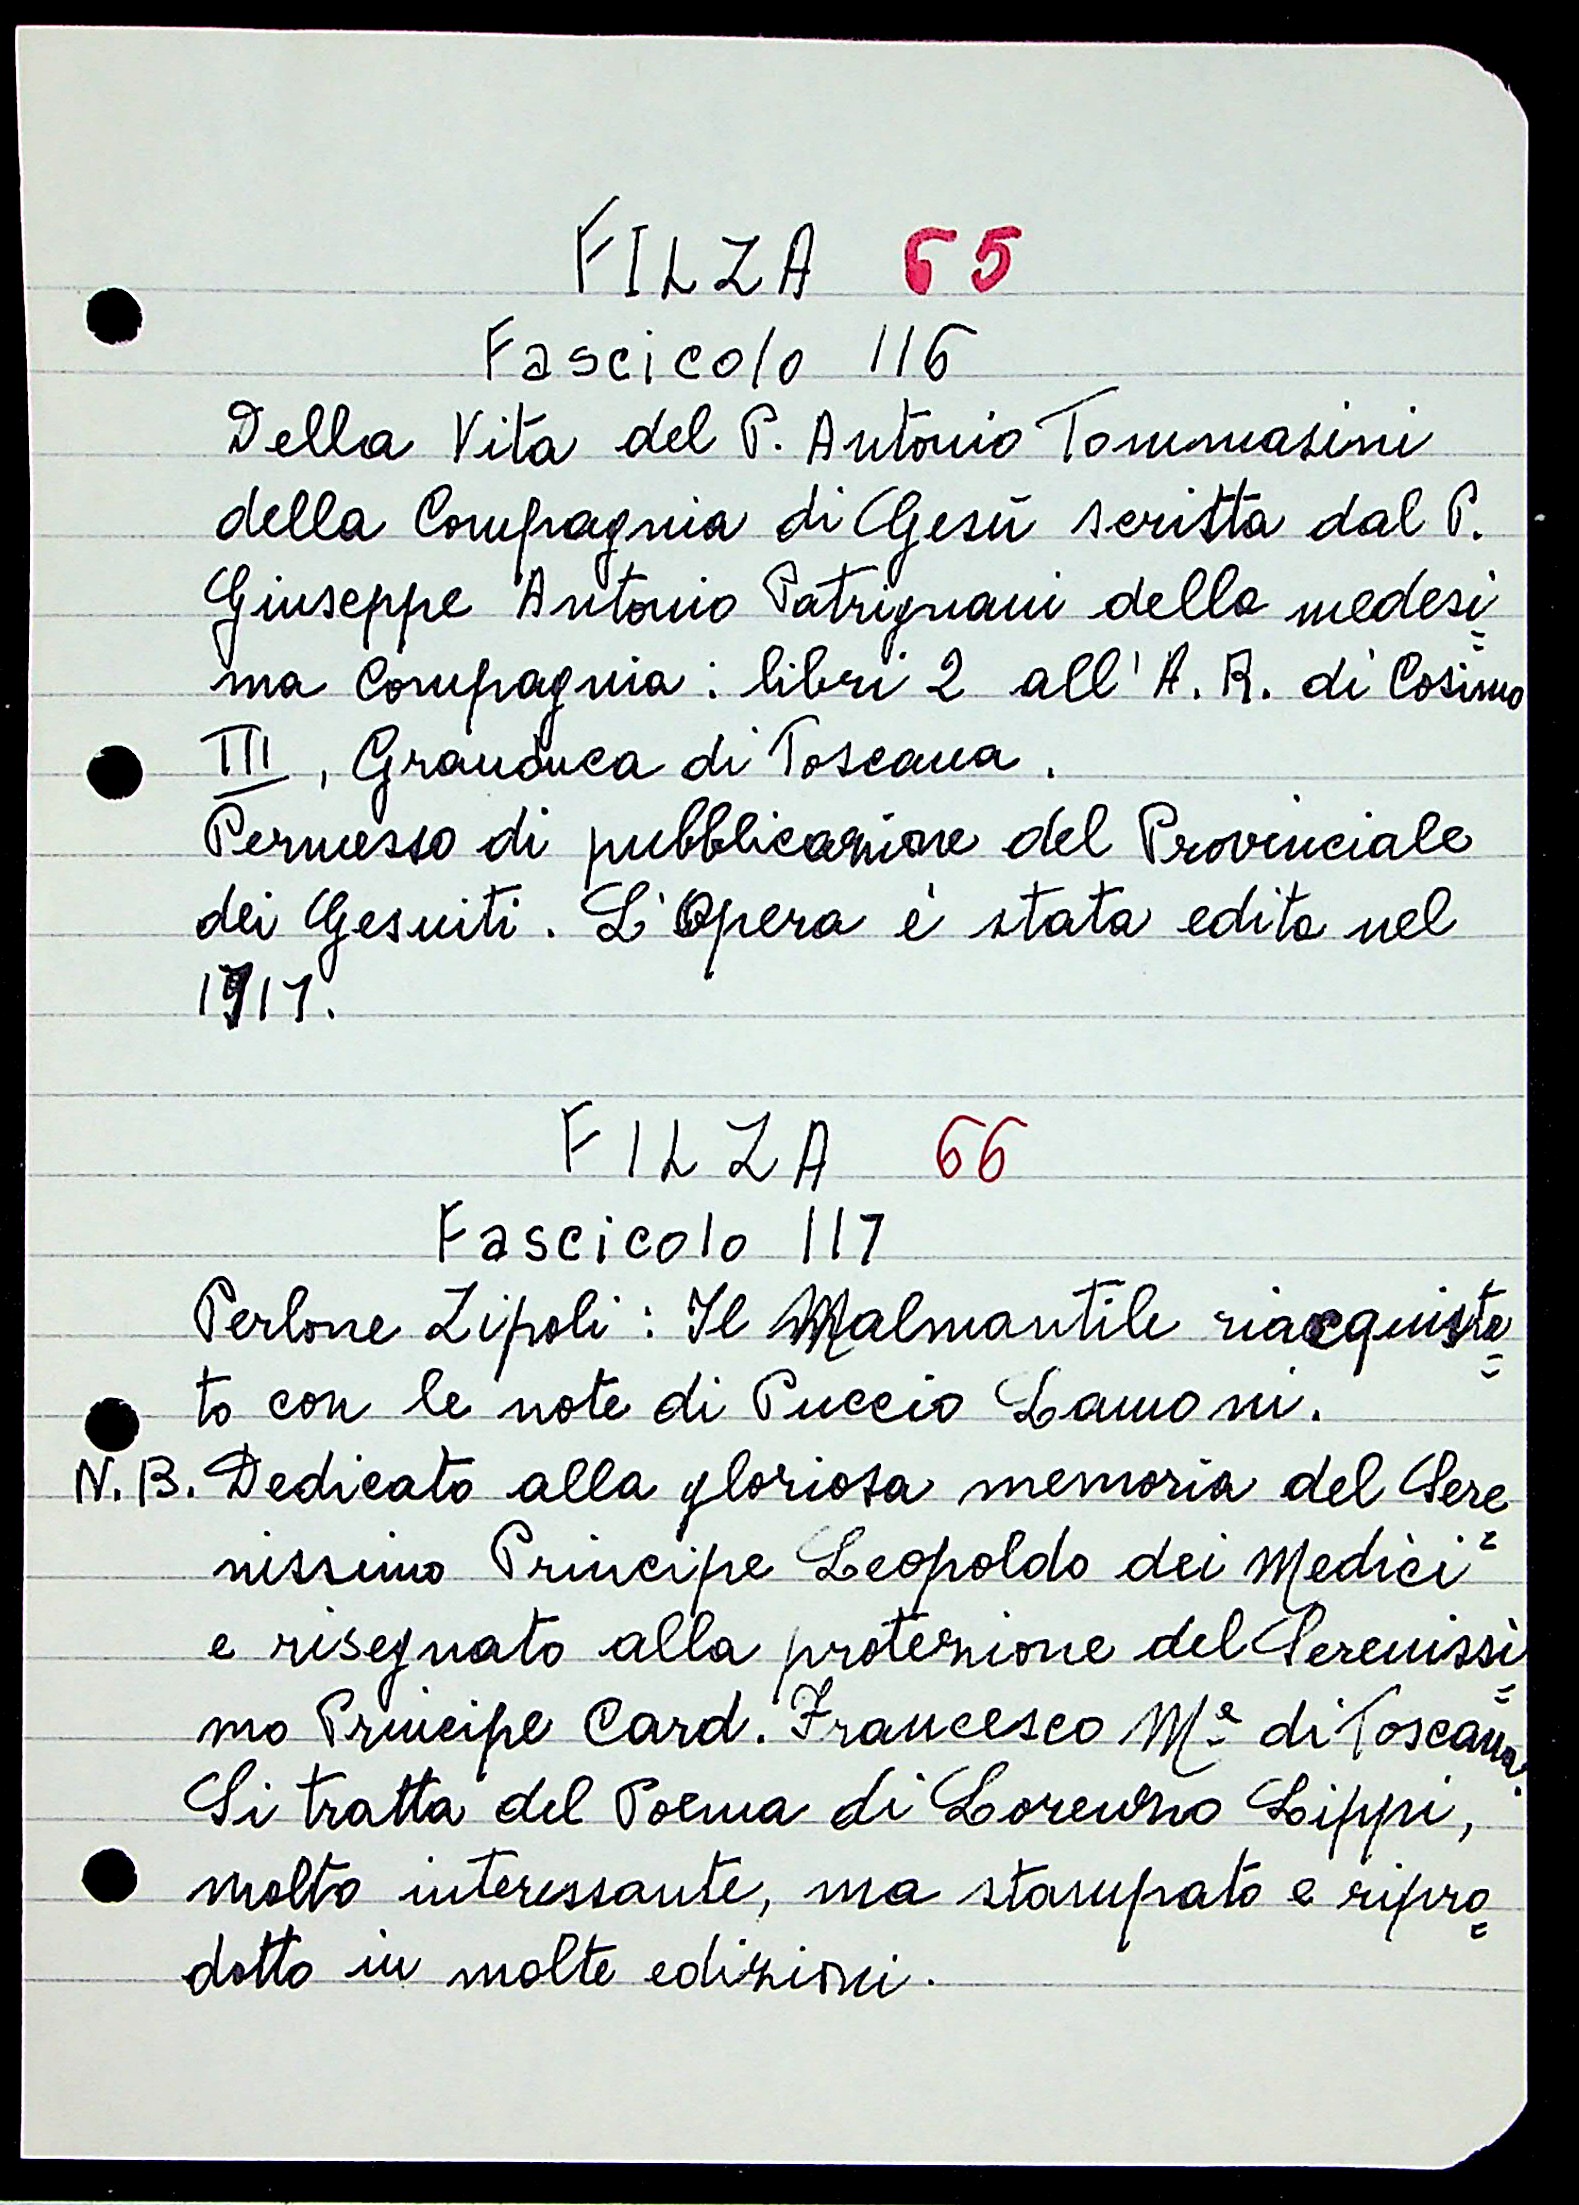 FILZA 65
Fascicolo 116
Della Vita del P. Antonio Tommasini
della Compagnia di Gesù scritta dal P.
Giuseppe Antonio Patrignani della medesi=
ma Compagnia: libri 2 all'A. R. di Cosimo
III, Granduca di Toscana.
Permesso di pubblicazione del Provinciale
dei Gesuiti. L'Opera è stata edita nel
1717.
FILZA 66
Fascicolo 117
Perlone Zipoli: Il Malmantile riacquista=
to con le note di Puccio Lamoni.
N.B. Dedicato alla gloriosa memoria del Sere=
nissimo Principe Leopoldo dei Medici
e risegnato alla protezione del Serenissi=
mo Principe Card. Francesco Mª di Toscana.
Si tratta del Poema di Lorenzo Lippi,
molto interessante, ma stampato e ripro=
dotto in molte edizioni.